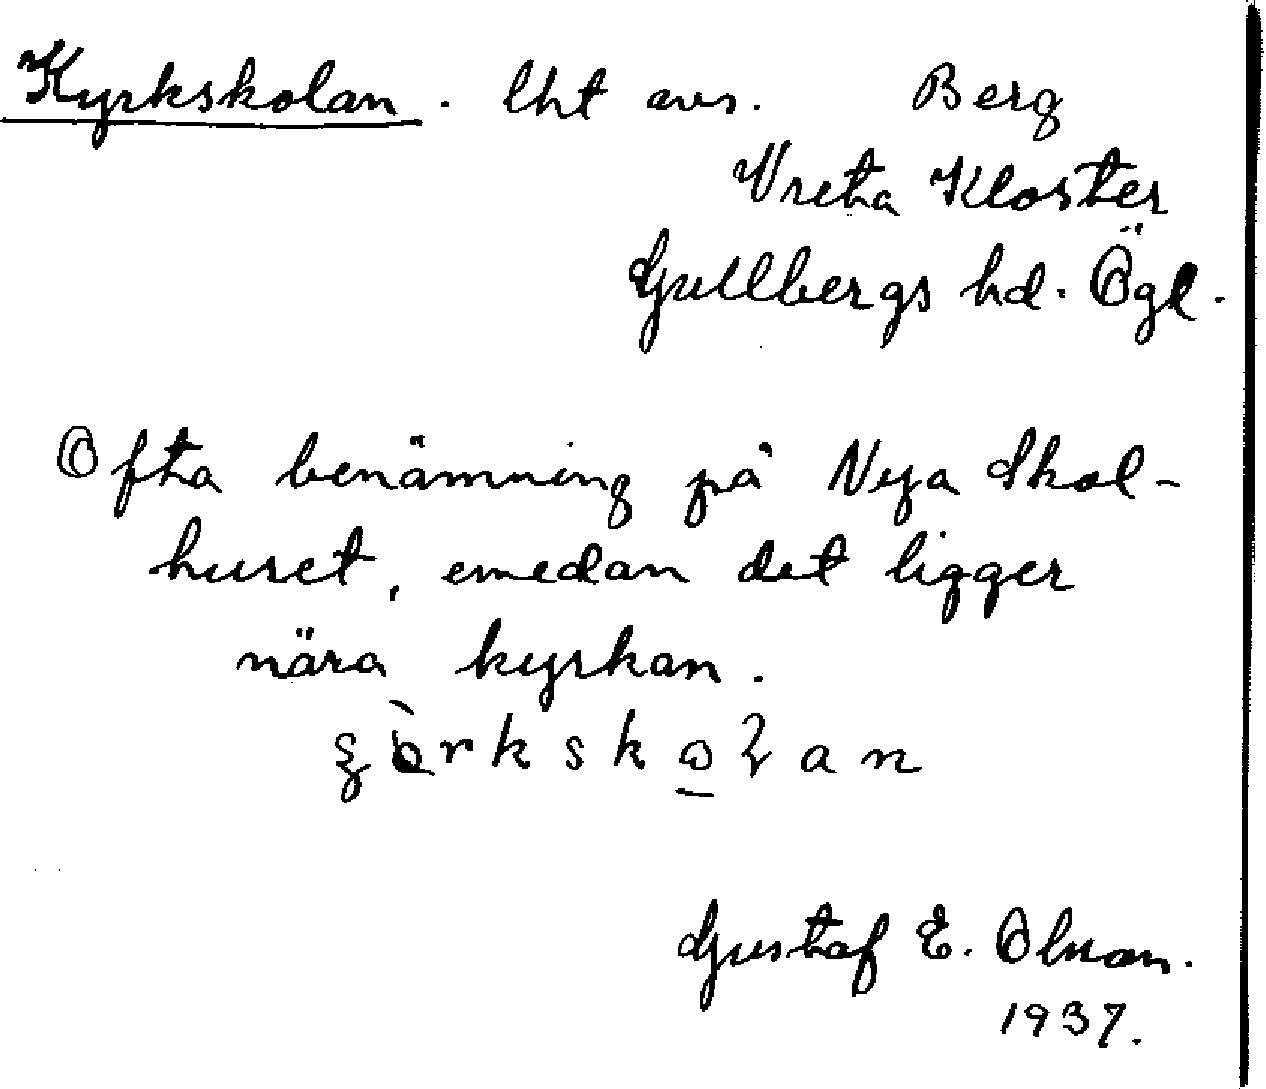 Kyrkskolan. lht avs. Berg
Vreta Kloster
Gullbergs hd. Ögl.
Ofta benämning på Nya Skol-
huset, emedan det ligger
nära kyrkan.
Gustaf E. Olsson.
1937.